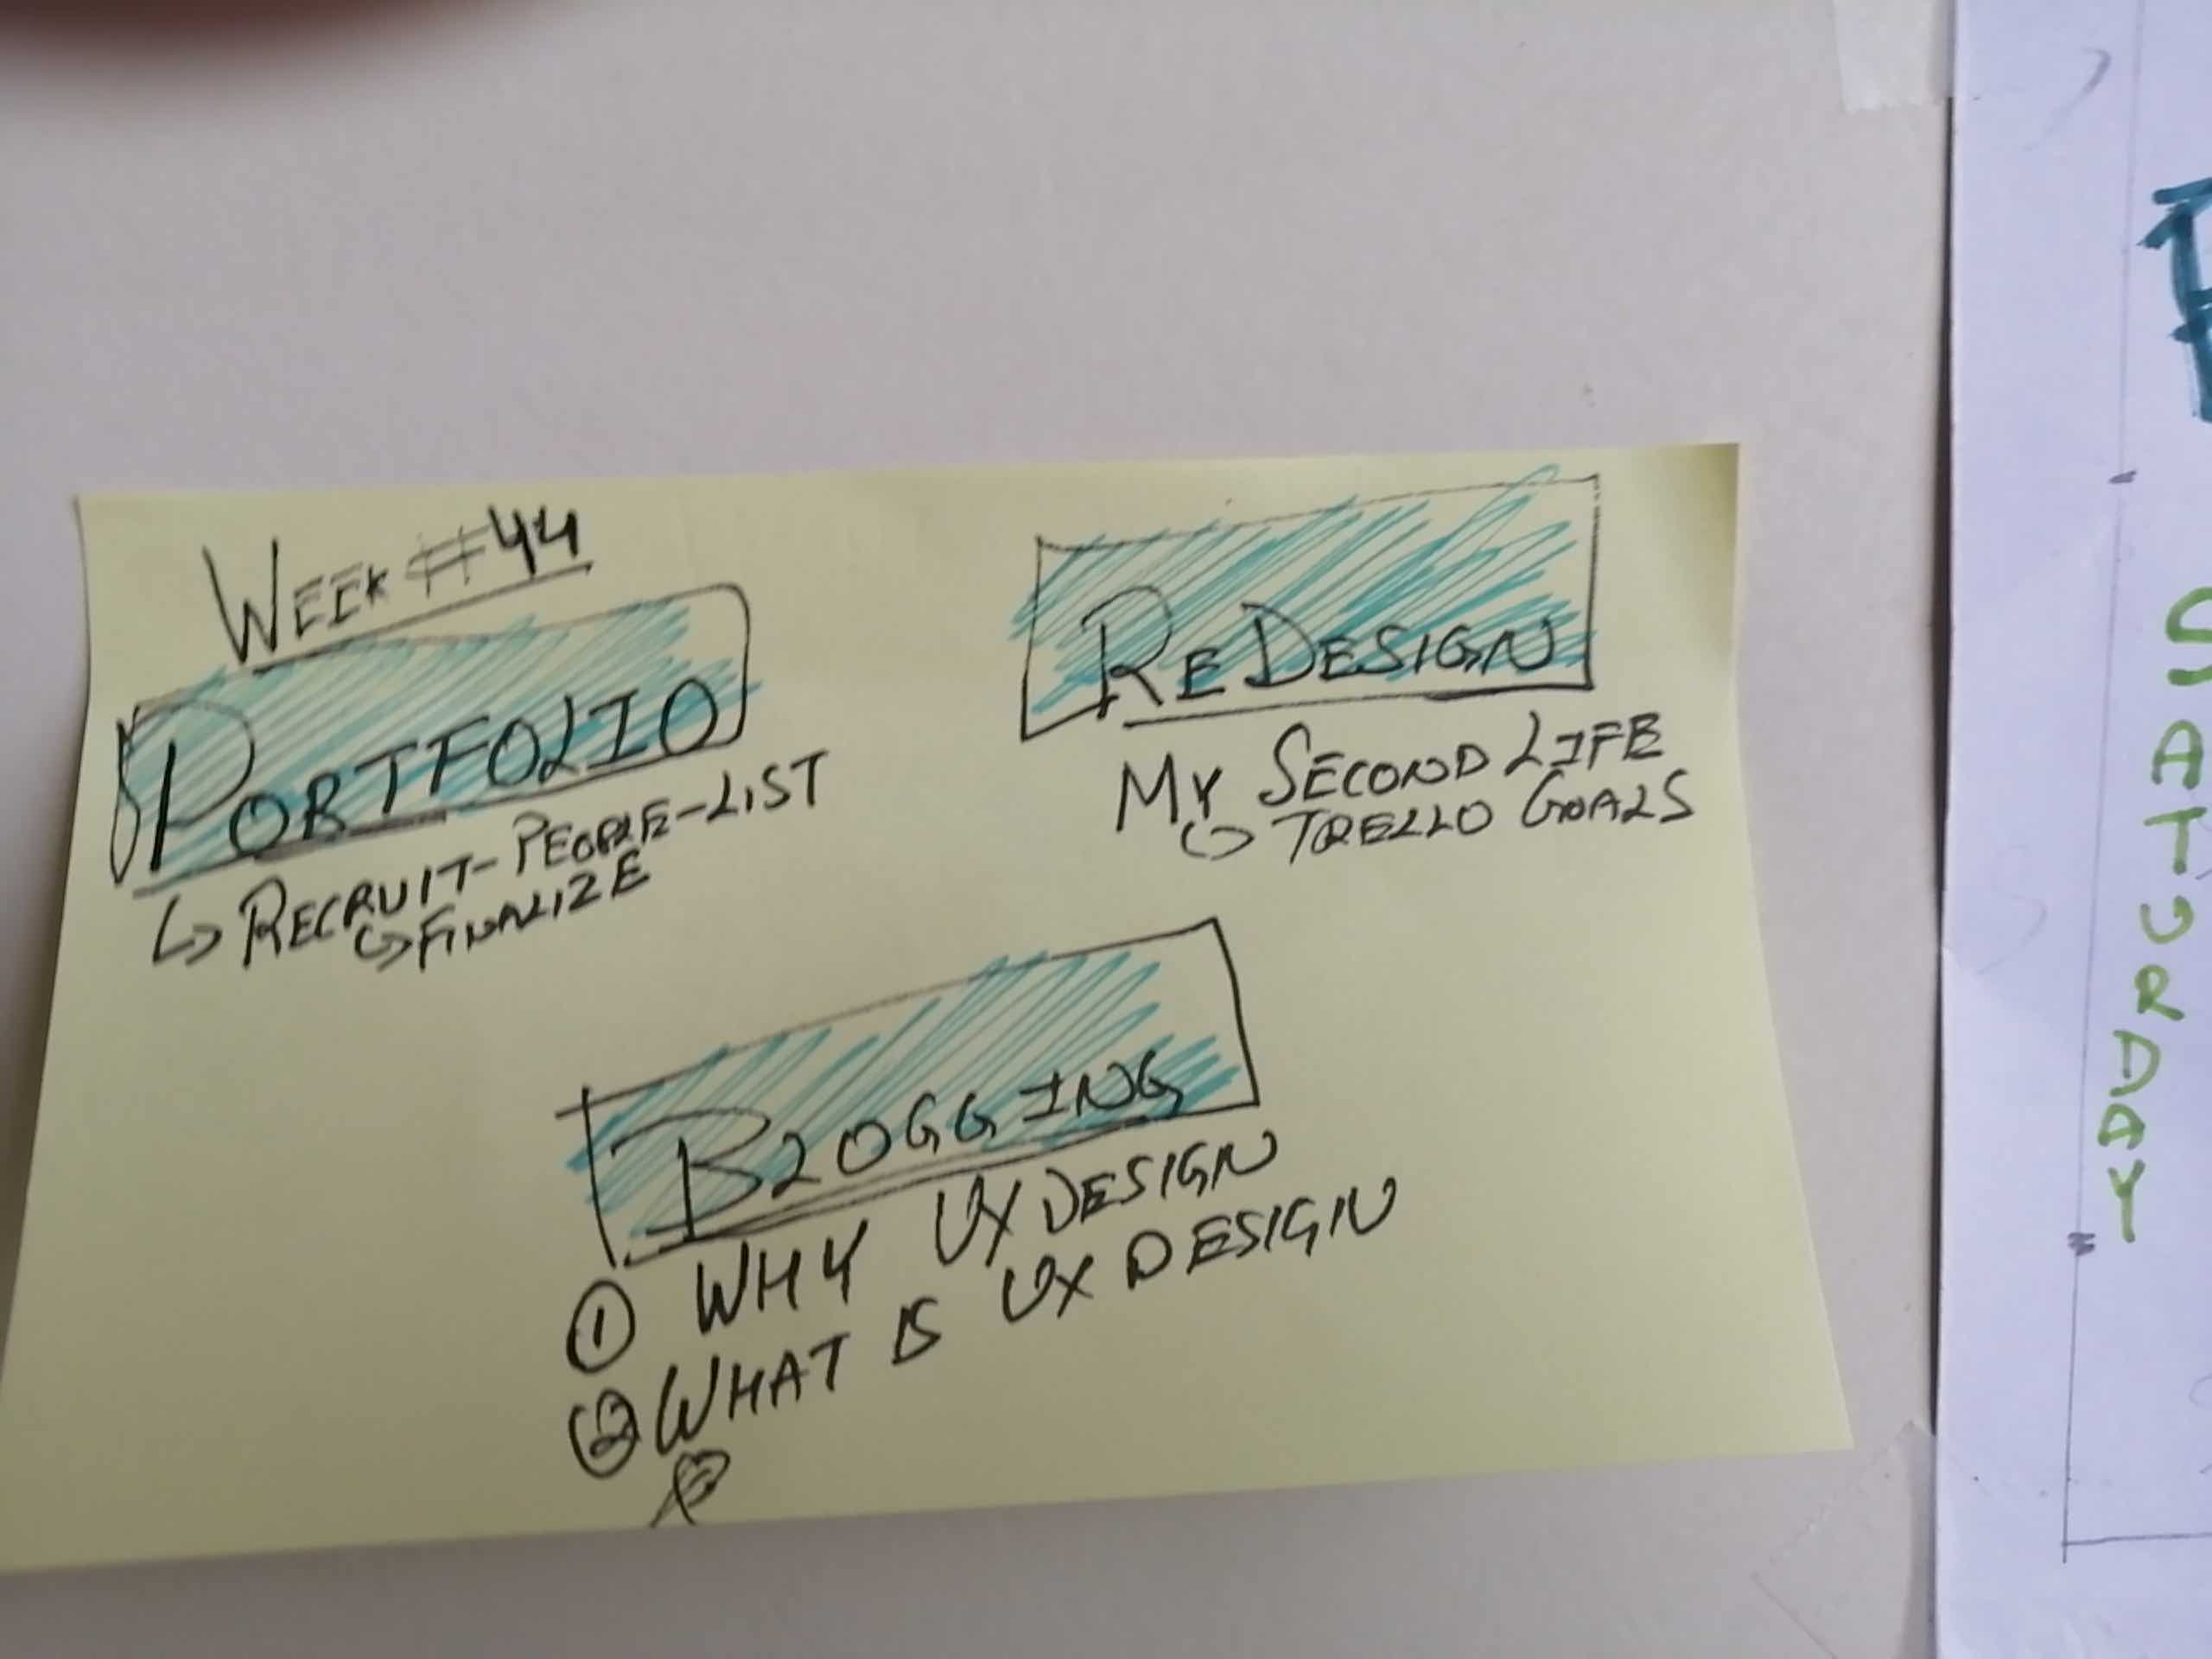 WEEK #44
PORTFOLIO
↳ RECRUIT-PEOPLE-LIST
↳ FINALIZE
REDESIGN
MY SECOND LIFE
↳ TRELLO GOALS
BLOGGING
① WHY UX DESIGN
② WHAT IS UX DESIGN
SATURDAY